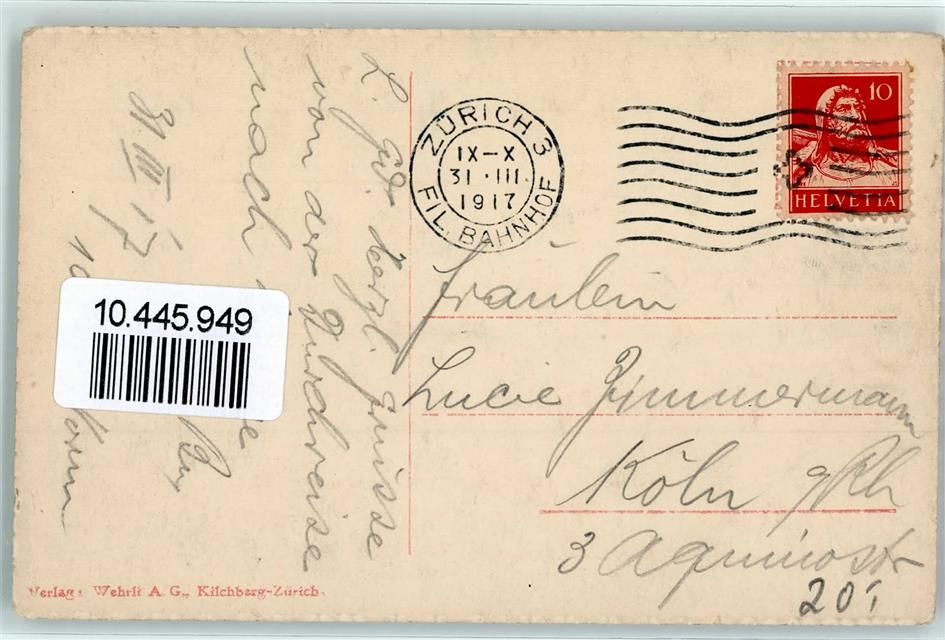 L. Gd. herzl. Grüsse
von der Durchreise
nach
31. III 17
10.445.949
ZÜRICH 3
IX-X
31·III.
1917
FIL. BAHNHOF
10
HELVETIA
Fräulein
Lucie Zimmermann
Köln a/Rh
3 Aquinostr
20
Verlag: Wehrli A. G., Kilchberg-Zürich.